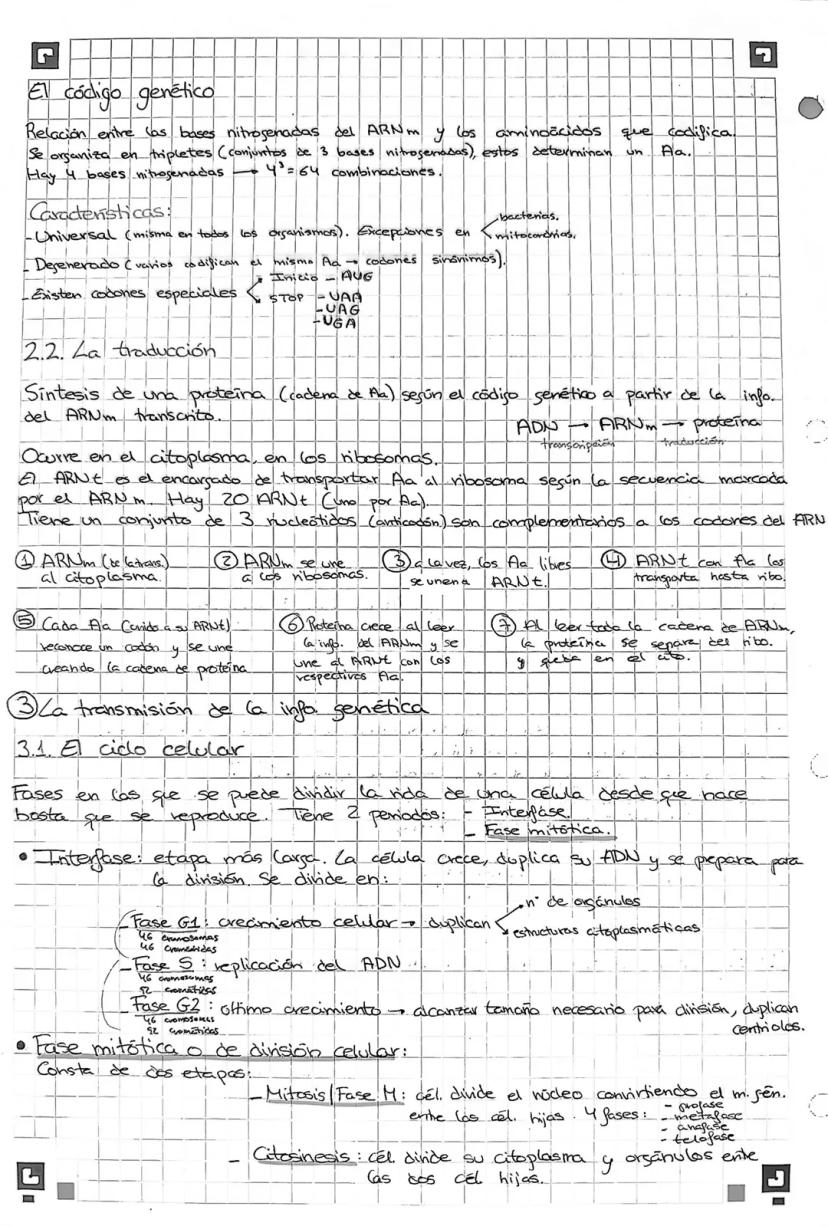 El código genético
Relación entre las bases nitrogenadas del ARNm y los aminoácidos que codifica.
Se organiza en tripletes (conjuntos de 3 bases nitrogenadas), estos determinan un Aa.
Hay 4 bases nitrogenadas → 4³ = 64 combinaciones.
Características:
- Universal (misma en todos los organismos). Excepciones en bacterias.
mitocondrias.
- Degenerado (varios codifican el mismo Aa → codones sinónimos).
- Existen codones especiales Inicio - AUG
STOP - UAA
- UAG
- UGA
2.2. La traducción
Síntesis de una proteína (cadena de Aa) según el código genético a partir de la info.
del ARNm transcrito.
ADN → ARNm → proteína
transcripción traducción
Ocurre en el citoplasma, en los ribosomas.
El ARNt es el encargado de transportar Aa al ribosoma según la secuencia marcada
por el ARNm. Hay 20 ARNt (uno por Aa).
Tiene un conjunto de 3 nucleótidos (anticodón) son complementarios a los codones del ARN
① ARNm (de la trans.)
al citoplasma.
② ARNm se une
a los ribosomas.
③ a la vez, los Aa libres
se unen a ARNt.
④ ARNt con Aa los
transporta hasta ribo.
⑤ Cada Aa (unido a su ARNt)
reconoce un codón y se une
creando la cadena de proteína
⑥ Proteína crece al leer
la info. del ARNm y se
une el ARNt con los
respectivos Aa.
⑦ Al leer toda la cadena de ARNm,
la proteína se separa del ribo.
y queda en el cito.
③ La transmisión de la info genética
3.1. El ciclo celular
Fases en las que se puede dividir la vida de una célula desde que nace
hasta que se reproduce. Tiene 2 periodos: - Interfase.
- Fase mitótica.
• Interfase: etapa más larga. La célula crece, duplica su ADN y se prepara para
la división. Se divide en:
- Fase G1: crecimiento celular → duplican nº de orgánulos
estructuras citoplasmáticas
46 cromosomas
46 cromátidas
- Fase S: replicación del ADN
46 cromosomas
92 cromátidas
- Fase G2: último crecimiento → alcanzar tamaño necesario para división, duplican
centriolos.
46 cromosomas
92 cromátidas
• Fase mitótica o de división celular:
Consta de dos etapas:
- Mitosis/Fase M: cél. divide el núcleo convirtiendo el m. gén.
entre las cél. hijas. 4 fases: - profase
- metafase
- anafase
- telofase
- Citosinesis: cél divide su citoplasma y orgánulos entre
las dos cél hijas.